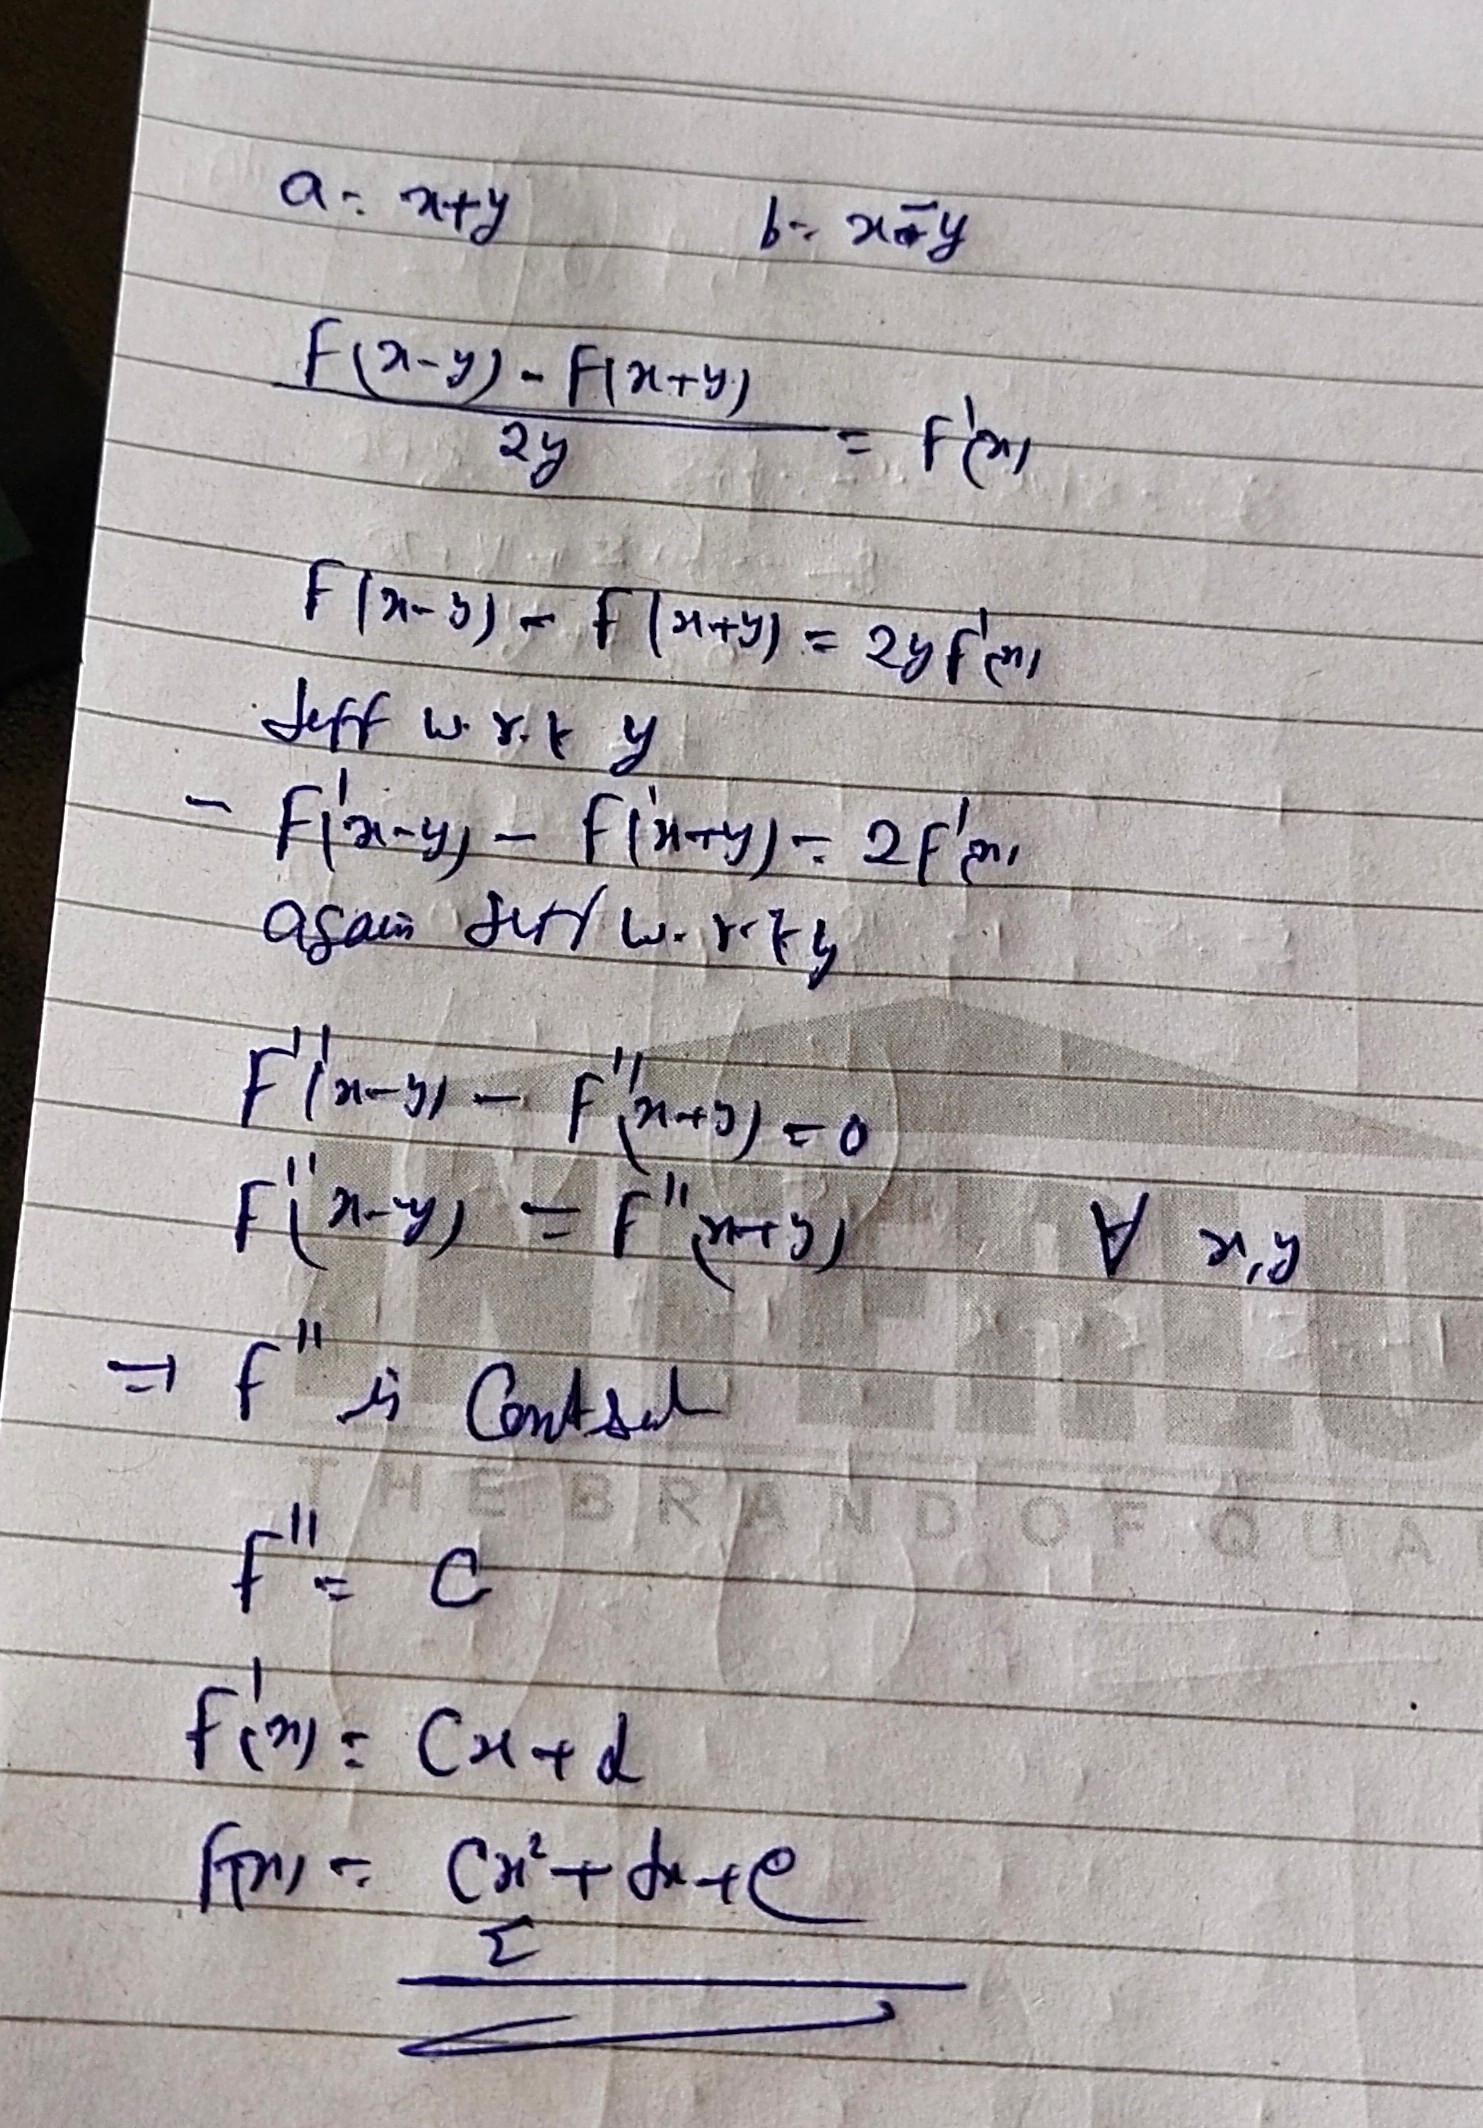 a = x+y b = x-y
F(x-y) - F(x+y)
2y
= F'(x)
F(x-y) - F(x+y) = 2yF'(x)
diff w.r.t y
- F'(x-y) - F'(x+y) = 2F'(x)
again diff w.r.t y
F''(x-y) - F''(x+y) = 0
F''(x-y) = F''(x+y) ∀ x,y
⇒ F'' is
THE BRAND OF QUA
F'' = C
F'(x) = Cx + d
F(x) = Cx² + dx + e